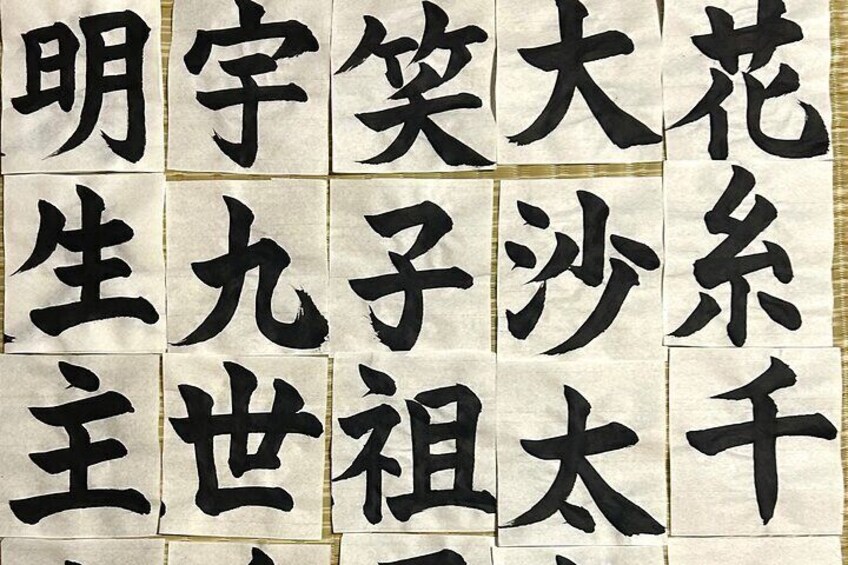 明宇笑大花
生九子沙糸
主世祖太千